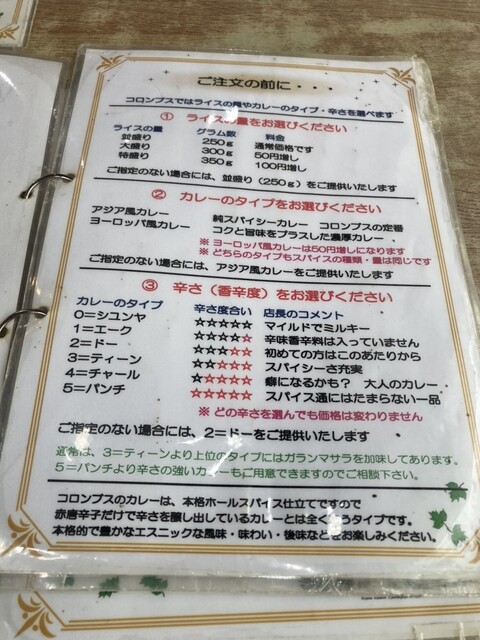 ご注文の前に・・・
コロンブスではライスの量やカレーのタイプ・辛さを選べます
① ライスの量をお選びください
ライスの量 グラム数 料金
並盛り 250g 通常価格です
大盛り 300g 50円増し
特盛り 350g 100円増し
ご指定のない場合には、並盛り(250g)をご提供いたします
② カレーのタイプをお選びください
アジア風カレー 純スパイシーカレー コロンブスの定番
ヨーロッパ風カレー コクと旨味をプラスした濃厚カレー
※ ヨーロッパ風カレーは50円増しになります
※ どちらのタイプもスパイスの種類・量は同じです
ご指定のない場合には、アジア風カレーをご提供いたします
③ 辛さ(香辛度)をお選びください
カレーのタイプ 辛さ度合い 店長のコメント
0=シュンヤ ☆☆☆☆☆ マイルドでミルキー
1=エーク ☆☆☆☆☆ 辛味香辛料は入っていません
2=ドー ☆☆☆☆☆ 初めての方はこのあたりから
3=ティーン ☆☆☆☆☆ スパイシーさ充実
4=チャール ☆☆☆☆☆ 癖になるかも? 大人のカレー
5=パンチ ☆☆☆☆☆ スパイス通にはたまらない一品
※ どの辛さを選んでも価格は変わりません
ご指定のない場合には、2=ドーをご提供いたします
通常は、3=ティーンより上位のタイプにはガランマサラを加味してあります。
5=パンチより辛さの強いカレーもご用意できますのでご相談下さい。
コロンブスのカレーは、本格ホールスパイス仕立てですので
赤唐辛子だけで辛さを醸し出しているカレーとは全く違うタイプです。
本格的で豊かなエスニックな風味・味わい・後味などをお楽しみください。